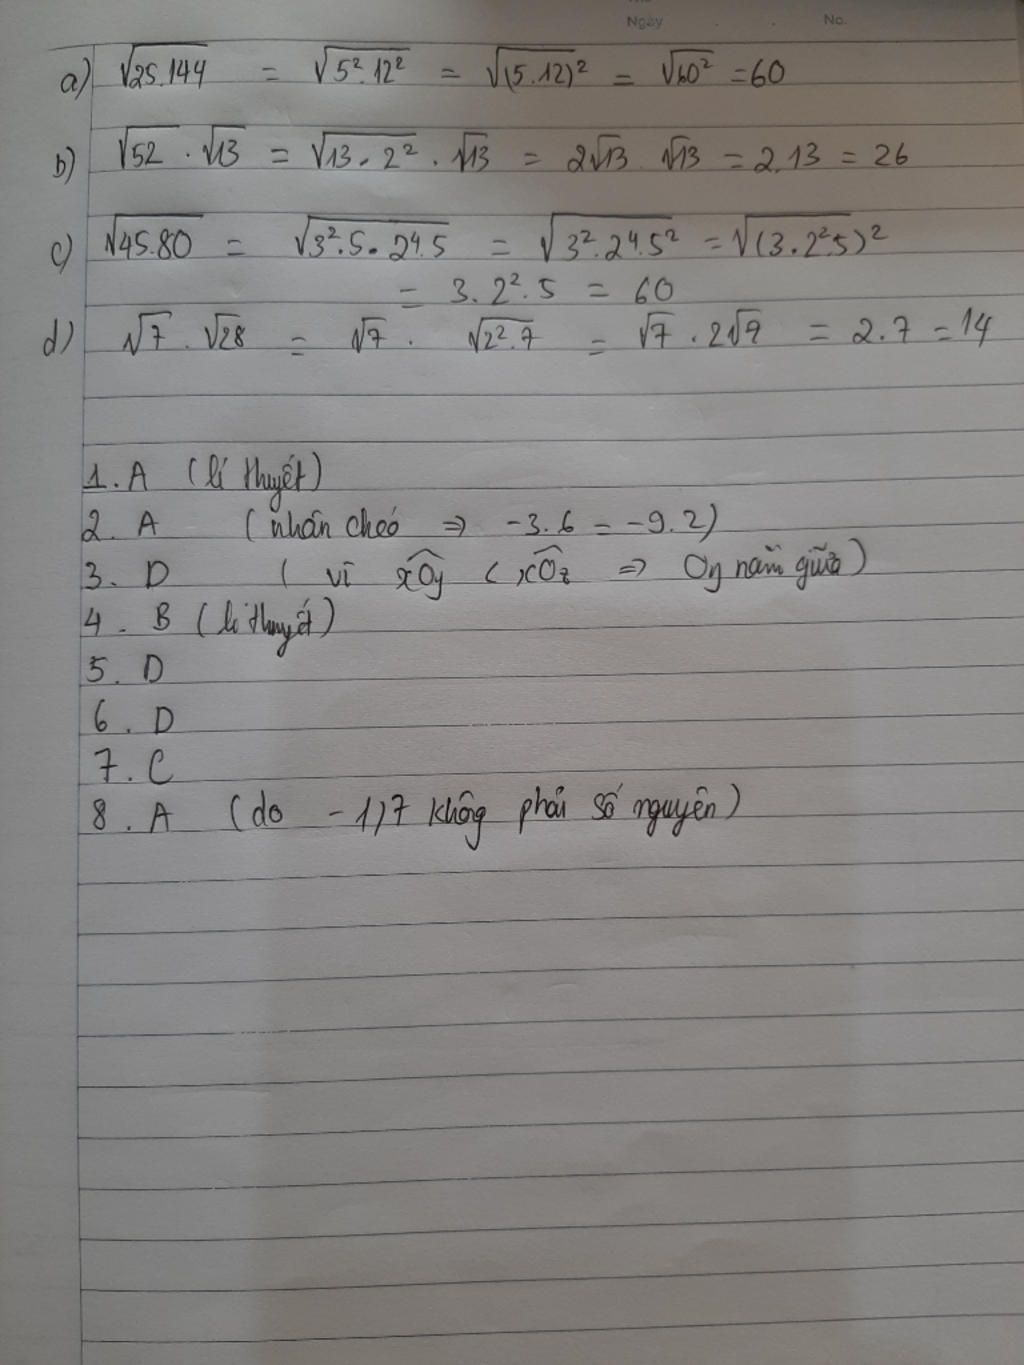 Ngày No.
a) √25.144 = √5².12² = √(5.12)² = √60² = 60
b) √52 . √13 = √13.2² . √13 = 2√13 . √13 = 2.13 = 26
c) √45.80 = √3².5.2⁴.5 = √3².2⁴.5² = √(3.2².5)²
= 3.2².5 = 60
d) √7 . √28 = √7 . √2².7 = √7 . 2√7 = 2.7 = 14
1. A (lí thuyết)
2. A (nhân chéo => -3.6 = -9.2)
3. D ( vì xOy < xOz => Oy nằm giữa)
4. B (lí thuyết)
5. D
6. D
7. C
8. A (do -1,7 không phải số nguyên)